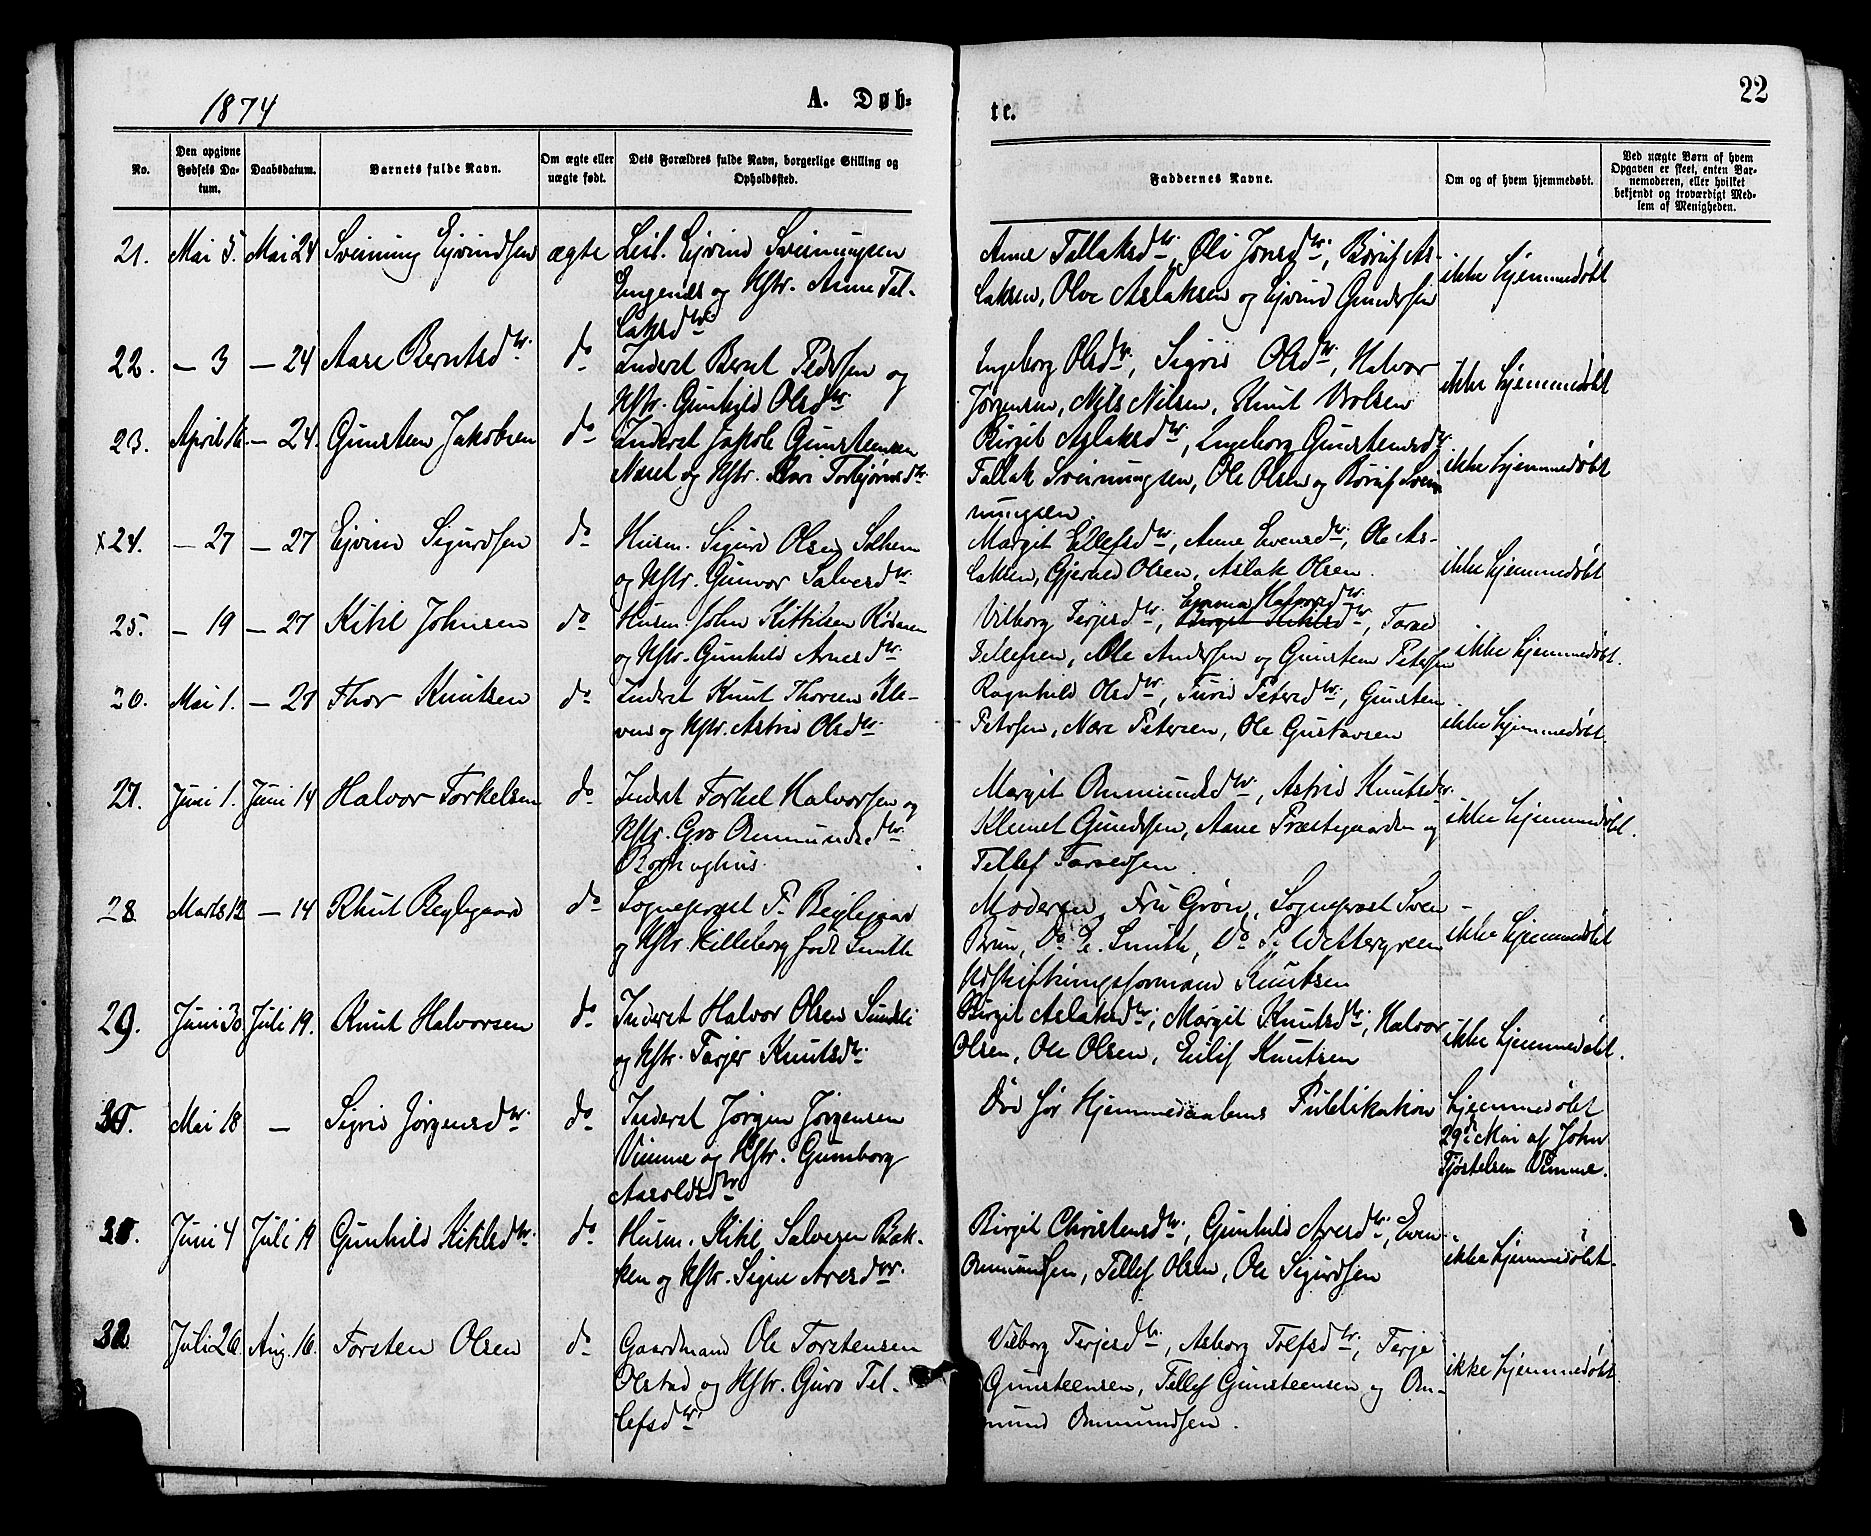 1874
A. Døb=
te.
22
No.
Den opgivne Fødsels Da-
tum.
Daabsdatum.
Barnets fulde Navn.
Om ægte eller
uægte født.
Dets Forældres fulde Navn, borgerlige Stilling og
Opholdssted.
Faddernes Navne.
Om og af hvem hjemmedøbt.
Ved uægte Børn af hvem
Opgaven er skeet, enten Bar-
nemoderen, eller hvilket
bekjendt og troværdigt Med-
lem af Menigheden.
21. Mai 5. Mai 24 Sveinung Ejvindsen ægte Leil. Ejvind Sveinungsen
Engenes og Hstr. Anne Tal-
laksdtr.
Anne Tallaksdtr, Oli Jonsdtr, Børuf As-
laksen, Olve Aslaksen og Ejvind Gundersen
ikke hjemmedøbt
22. — 3 — 24 Aase Berntsdtr. do Inderst Bernt Pedersen og
Hstr. Gunhild Olsdtr.
Ingeborg Olsdtr, Sigrid Olsdtr, Halvor
Jørgensen, Nils Nilsen, Knut Olsen
ikke hjemmedøbt
23. April 16. — 24. Gunsteen Jakobsen do Inderst Jakob Gunsteensen
og Hstr. Kari Torbjørnsdtr.
Birgit Aslaksdtr, Ingeborg Gunsteensdtr.
Tallak Sveinungsen, Ole Olsen og Børuf Svein
nungsen.
ikke hjemmedøbt
x24. — 27 — 27 Ejvind Sigurdsen do Husm. Sigurd Olsen Solhem
og Hstr. Gunvor Salvesdtr.
Margit Ellefsdtr, Anne Evensdtr, Ole As-
laksen, Gjermund Olsen, Aslak Olsen.
ikke hjemmedøbt
25. — 19 — 27 Kitil Johnsen do Husm. John Kittilsen
og Hstr. Gunhild Arnesdtr.
Emma Halvorsdtr.
Vilborg Terjesdtr, Birgit Kitilsdtr, Tarje
Tellefsen, Ole Andersen og Gunsteen Petersen
ikke hjemmedøbt.
26. Mai 1. — 27 Thor Knutsen do Inderst Knut Thorsen Kle-
ven og Hstr. Astrid Olsdtr.
Ragnhild Olsdtr, Turid Petersdtr, Gunsten
Petersen, Nære Petersen, Ole Gustavsen
ikke hjemmedøbt.
27. Juni 1. Juni 14 Halvor Torkelsen do Inderst Torkel Halvorsen og
Hstr. Gro Ommundsdtr.
Margit Ommundsdtr, Astrid Knutsdtr.
Klemet Gundersen, Aane Præstegaarden og
Tellef Tarjedsen.
ikke hjemmedøbt.
28 Marts 12 — 14 Knut Beglegaard do Sogneprest P. Beglegaard
og Hstr. Hilleborg født Smith
Moderen, Fru Grøn, Sogneprest Sven
Brun, Do E. Smith, Do P. Wettergreen
Udskiftningsformand Knutsen
ikke hjemmedøbt
29. Juni 30 Juli 19. Knut Halvorsen do Inderst Halvor Olsen Sundli
og Hstr. Tarjer Knutsdtr.
Birgit Aslaksdtr, Margit Knutsdtr, Halvor
Olsen, Ole Olsen, Eilif Knutsen
ikke hjemmedøbt.
30. Mai 18 — Sigrid Jørgensdtr. do Inderst Jørgen Jørgensen
Vimme og Hstr. Gumborg
Aasoldsdtr
Død før Hjemmedaabens Publikation
hjemmedøbt
29de Mai af John
Tjøstelsen Vimme.
31. Juni 4 Juli 19 Gunhild Kitilsdtr. do Husm. Kitil Salvesen Bak-
ken og Hstr. Signe Aresdtr.
Birgit Christensdtr, Gunhild Aresdtr, Even
Ommundsen, Tellef Olsen, Ole Sigurdsen
ikke hjemmedøbt.
32 Juli 26. Aug. 16. Torsten Olsen do Gaardmand Ole Torstensen
Olstad og Hstr. Guro Tel-
lefsdtr.
Vilborg Terjesdtr, Asborg Tolfsdtr, Terje
Gunsteensen, Tellef Gunsteensen og Om-
mund Ommundsen.
ikke hjemmedøbt